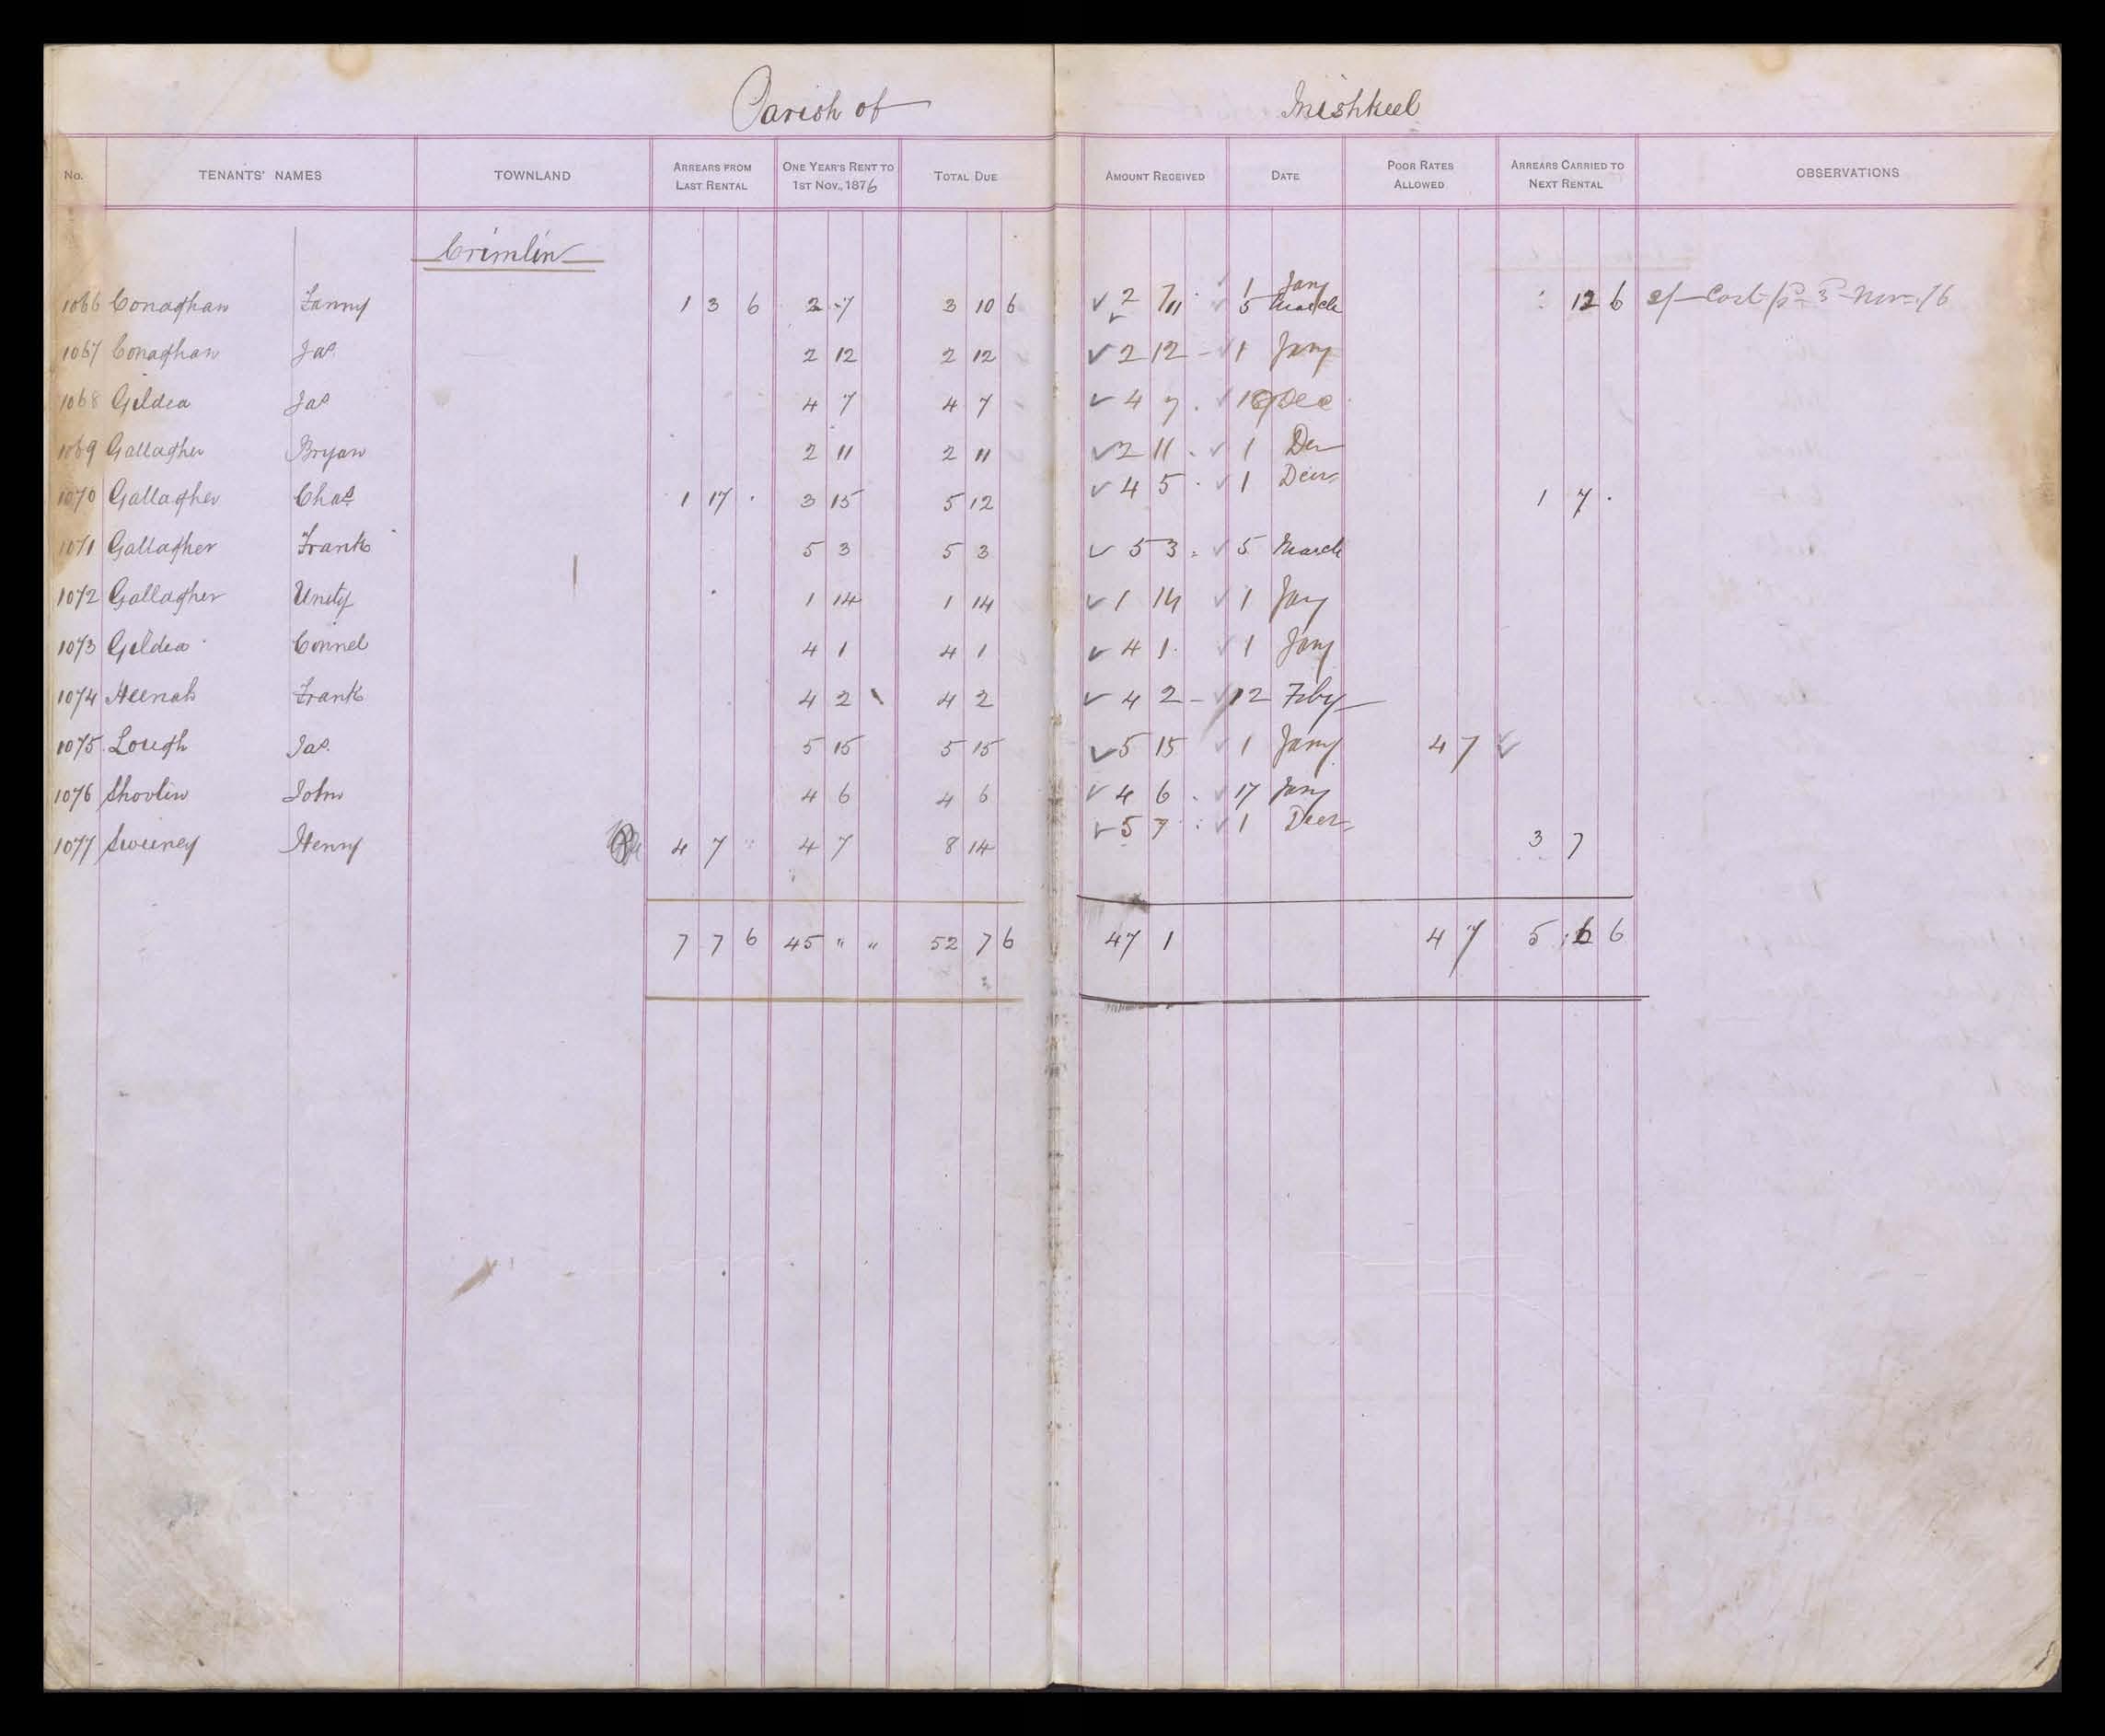 Parish of Inishkeel
No. TENANTS' NAMES TOWNLAND ARREARS FROM LAST RENTAL ONE YEAR'S RENT TO 1ST NOV., 1876 TOTAL DUE AMOUNT RECEIVED DATE POOR RATES ALLOWED ARREARS CARRIED TO NEXT RENTAL OBSERVATIONS
Crimlin
1066 Conaghan Fanny 1 3 6 2 7 3 10 6 2 7 11 1 Jany 5 March 12 6 Cost 3 Nov 76
1067 Conaghan Jas 2 12 2 12 2 12 - 1 Jany
1068 Gildea Jas 4 7 4 7 4 7 . Dec
1069 Gallagher Bryan 2 11 2 11 2 11 . 1 Der
1070 Gallagher Chas 1 17 . 3 15 5 12 4 5 . 1 Decr 1 7 .
1071 Gallagher Frank 5 3 5 3 5 3 5 March
1072 Gallagher Unity 1 14 1 14 1 14 1 Jany
1073 Gildea Connel 4 1 4 1 4 1 . 1 Jany
1074 Heenah Frank 4 2 4 2 4 2 - 12 Feby
1075 Lough Jas. 5 15 5 15 5 15 1 Jany 4 7
1076 Shovlin John 4 6 4 6 4 6 . 17 Jany
1077 Sweeney Henry 4 7 " 4 7 8 14 5 7 1 Decr 3 7
7 7 6 45 " " 52 7 6 47 1 4 7 5 6 6